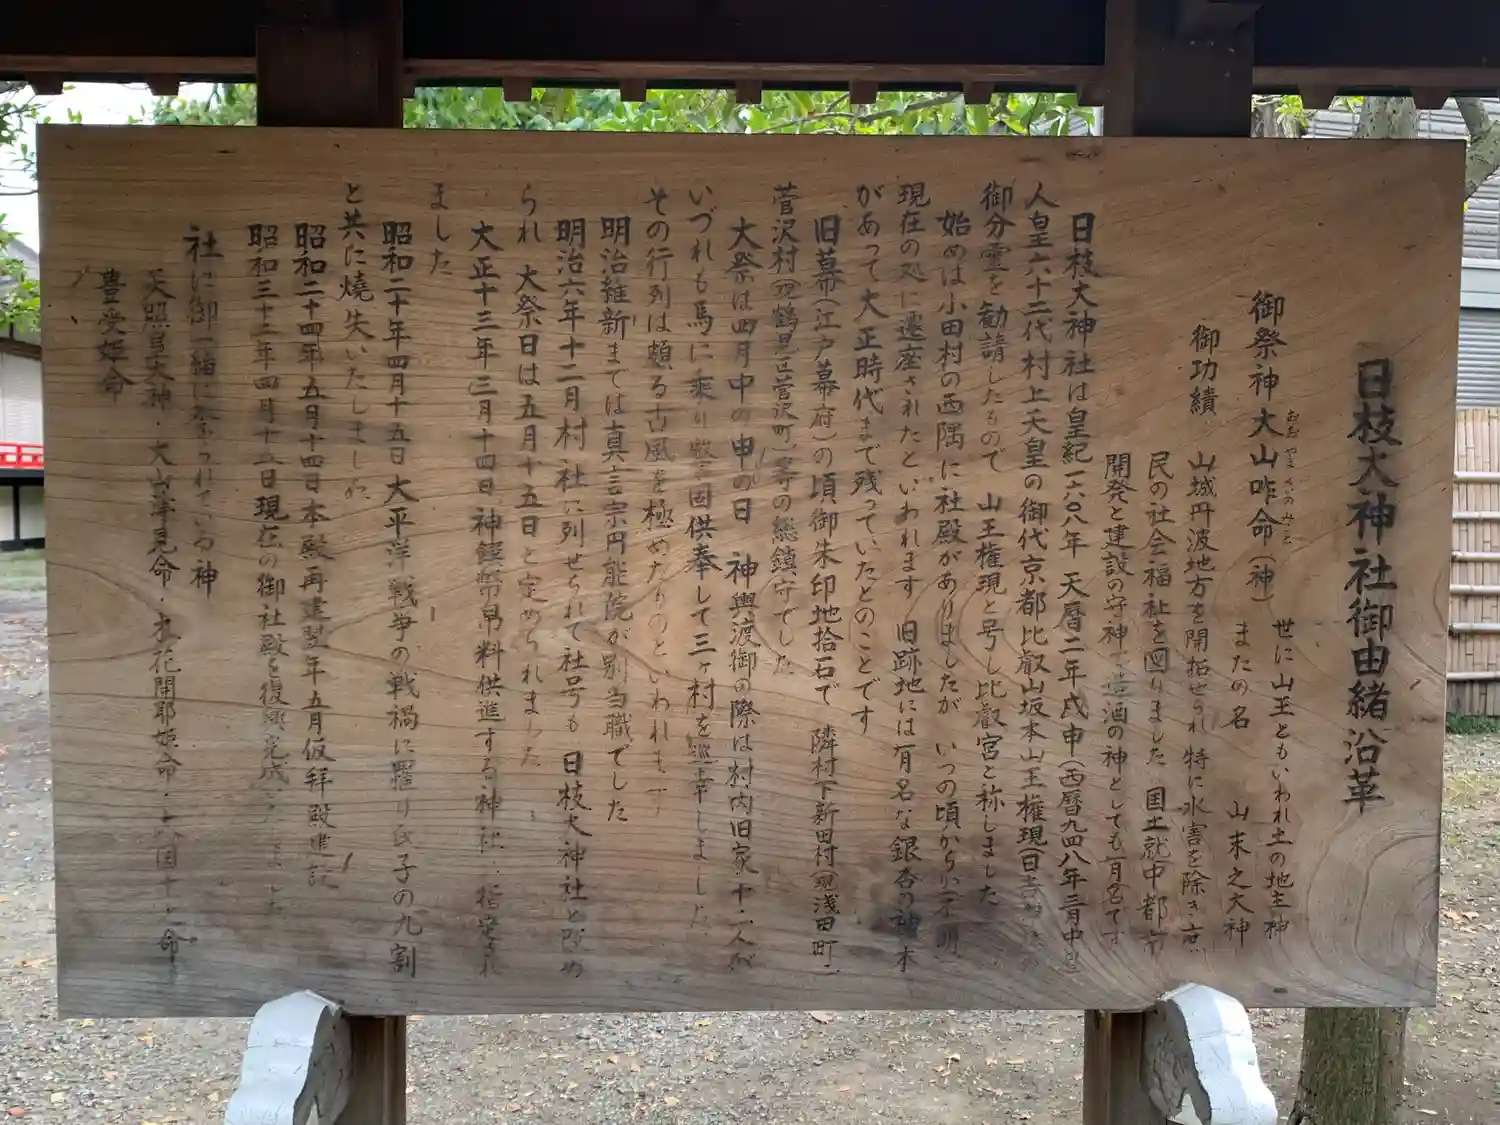 日枝大神社御由緒沿革
御祭神 大山咋命(神) 世に山王ともいわれ土の地主神
おおやまくいのみこと
またの名 山末之大神
御功績 山城丹波地方を開拓せられ 特に水害を除き
民の社会福祉を図りました 国土就中都市
開発と建設の守神 造酒の神としても有名です
日枝大神社は皇紀一六〇八年 天暦二年戊申(西暦九四八年)三月中
人皇六十二代村上天皇の御代京都比叡山坂本山王権現(日吉
御分霊を勧請したもので 山王権現と号し比叡宮と称しました
始めは小田村の西隅に社殿がありましたが いつの頃から 不明
現在の処に遷座されたといわれます 旧跡地には有名な銀杏の神木
があって大正時代まで残っていたとのことです
旧幕(江戸幕府)の頃御朱印地拾石で 隣村下新田村(現浅田町)
菅沢村(現鶴見区菅沢町)等の総鎮守でした
大祭は四月中の申の日 神輿渡御の際は村内旧家十 人が
いづれも馬に乗り 固供奉して三ヶ村を巡幸しました
その行列は頗る古風を極めたものといわれます
明治維新までは真言宗円能院が別当職でした
明治六年十二月村社に列せられて社号も 日枝大神社と改め
られ 大祭日は五月十五日と定められました
大正十三年三月十四日神饌幣帛料供進する神社に指定され
ました
昭和二十年四月十五日大平洋戦争の戦禍に罹り氏子の九割
と共に焼失いたしました
昭和二十四年五月十四日本殿再建翌年五月仮拝殿建設
昭和三十三年四月十 日現在の御社殿を復興完成 ました
社に御一緒に祭られている神
天照皇大神・大山津見命・木花開耶姫命・ 命
豊受姫命